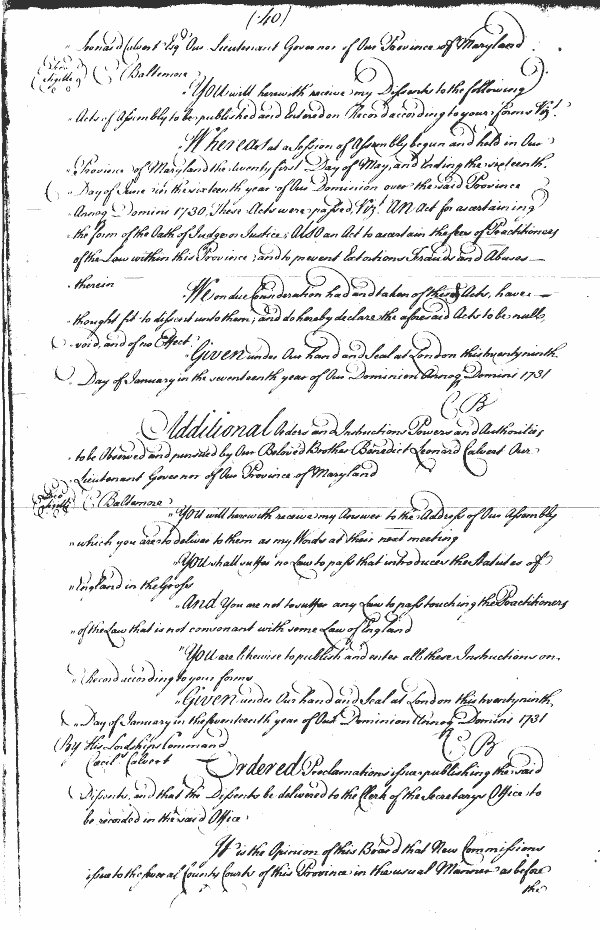 (40)
Leonard Calvert Esqr. Our Lieutenant Governor of Our Province of Maryland
C Baltemore
You will herewith receive my Dissents to the following
Acts of Assembly to be published and Entered on Record according to your forms Vizt.
Whereas at a Session of Assembly begun and held in Our
Province of Maryland the twenty first Day of May, and Ending the sixteenth
Day of June in the sixteenth year of Our Dominion over the said Province
Annoq Domini 1730. These Acts were passed, Vizt. An Act for ascertaining
the form of the Oath of Judge or Justice; Also an Act to ascertain the fees of Practitioners
of the Law within this Province; and to prevent Extortions Frauds and Abuses
therein
We on due Consideration had and taken of these Acts, have
thought fit to dissent unto them; and do hereby declare the aforesaid Acts to be null,
void, and of no Effect.
Given under Our hand and Seal at London this twenty ninth
Day of January in the seventeenth year of Our Dominion Annoq Domini 1731
C B
Additional Orders and Instructions Powers and Authorities
to be Observed and pursued by Our Beloved Brother Benedict Leonard Calvert Our
Lieutenant Governor of Our Province of Maryland
C Baltemore
You will herewith receive my Answer to the Address of Our Assembly
which you are to deliver to them as my Words at their next meeting
You shall suffer no Law to pass that introduces the Statutes of
England in the Gross
And You are not to suffer any Law to pass touching the Practitioners
of the Law that is not consonant with some Law of England
You are likewise to publish and enter all these Instructions on
Record according to your forms
Given under Our hand and Seal at London this twenty ninth
Day of January in the seventeenth year of Our Dominion Annoq Domini 1731
By His Lordships Command
C B
Cecil Calvert
Ordered Proclamations issue publishing the said
Dissents, and that the Dissents be delivered to the Clerk of the Secretarys Office to
be recorded in the said Office
It is the Opinion of this Board that New Commissions
issue to the several County Courts of this Province in the usual Manner as before
the